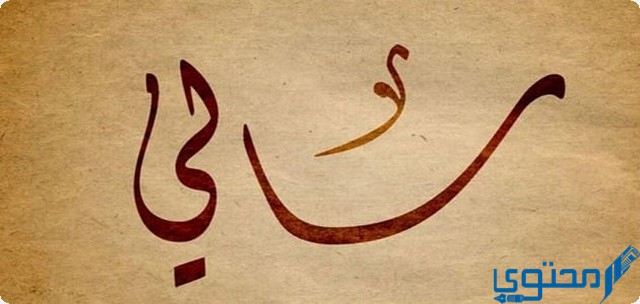 سالي
محتوى